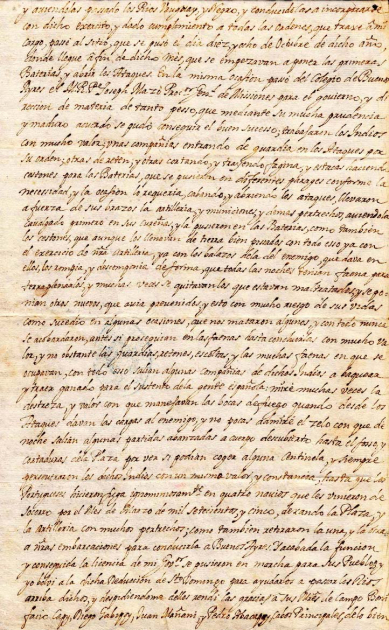 y atendelos pasado los Rios Uruguay, y Negro, y conducirlos a incorporarse
con dicho Exercito, y dado cumplimiento a todas las ordenes, que trave à mi
cargo, pasé al sitio, que se puso el dia diez, y ocho de Octubre de dicho año,
donde llegue à fin de dicho mes, que se empezavan a poner las primeras
Baterias, y abrir los Ataques. En la misma ocasion pasó del Colegio de Buenos
Ayres el M.R.P.e Joseph Mazo Pro.or Gen.l de Missiones para el govierno, y di-
reccion de materia de tanto pesso, que mediante su mucha prudencia
y maduro acuerdo se pudo conseguir el buen sucesso; trabajaron los Indios
con mucho valor; unas compañias entrando de guardia en los Ataques por
su orden; otras de reten; y otras cortando, y trayendo fagina, y estacas, haciendo
cestones para las Baterias, que se pusieron en diferentes parages conforme la
necessidad, y la ocasion lo requeria, cabando, y abriendo los ataques, llevaron
à fuerza de sus brazos la artilleria, y municiones, y demas pertrechos, haviendola
cavalgado primero en sus cureñas, y la pusieron en las Baterias, como tambien
los cestones, que aunque los llenavan de tierra bien pisada, con todo esso ya con
el exercicio de n.ra artilleria, ya con los balazos de la del enemigo, que dava en
ellos, los rompia, y descomponia de forma, que todas las noches tenian faena para
terraplenarlos, y muchas veces se quitavan los que estavan maltratados, y se po-
nian otros nuevos, que avia prevenidos, y esto con mucho riesgo de sus vidas
como sucedio en algunas ocasiones, que nos mataron algunos, y con todo nunca
se acobardaron, antes si proseguian en las faenas hasta concluirlas con mucho va-
lor, y no obstante las guardias, retenes, escoltas, y las muchas faenas en que se
ocupavan, con todo esso salian algunas compañias de dichos Indios a baquear,
y traer ganado para el sustento de la gente española; mirè muchas veces la
destreza, y valor con que manejavan las bocas de fuego quando desde los
Ataques davan las cargas al enemigo, y no pocas admirè el zelo con que de
noche salian algunas partidas abanzadas a cuerpo descubierto hasta el foso, y
cortaduras de la Plaza por ver si podian coger alguna Centinela, y siempre
perseveraron los dichos Indios con un mismo valor, y constancia, hasta que los
Portugueses hicieron fuga ignominiosam.te en quatro navios que les vinieron de
Socorro por el Mes de Marzo de mil setecientos, y cinco, dexando la Plaza, y
la artilleria con muchos pertrechos; como tambien retiraron la una, y la otra
a n.ras embarcaciones para conducirla a Buenos Ayres. Y acabada la funcion
y conseguida la licencia de mi Gov.or se pusieron en marcha para sus Pueblos, y
yo baxè a la dicha Reduccion de S.to Domingo para ayudarlos a pasar los Rios
arriba dicho, y despidiendome de ellos, rendi las gracias à sus Mros. de Campo Boni-
facio Capy, Diego Gabypoy, Juan Mañani, y Pedro Abacapy, Cabos Principales de lo bien